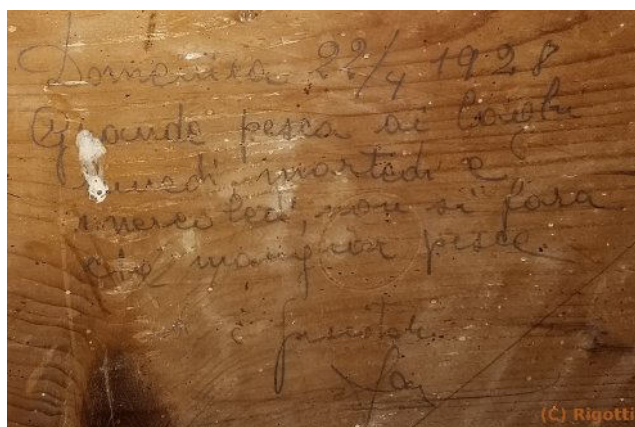 Domenica 22/4 1928
Grande pesca ai
lunedi, martedi e
mercoledi, non si farà
che mangiar pesce.
i pescatori
(C) Rigotti